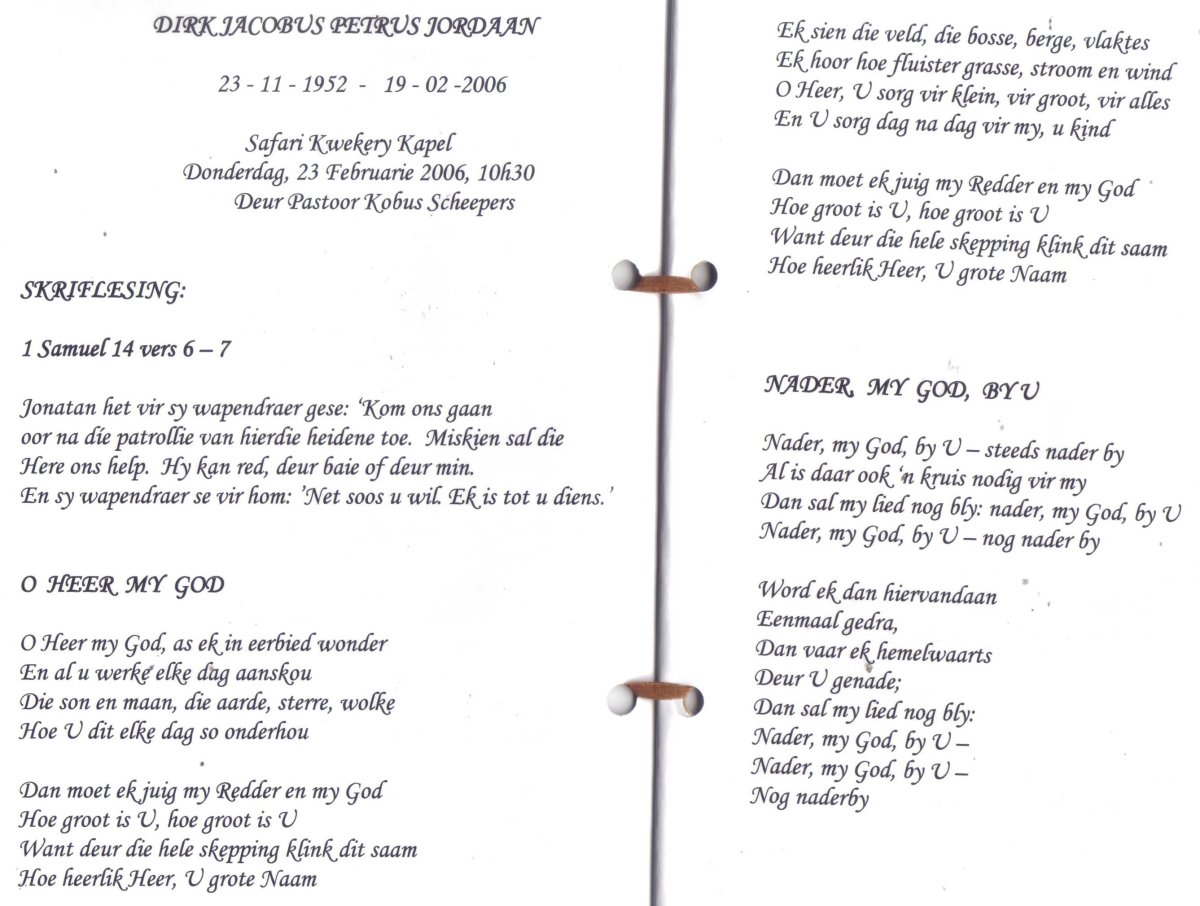 DIRK JACOBUS PETRUS JORDAAN
23 - 11 - 1952 - 19 - 02 -2006
Safari Kwekery Kapel
Donderdag, 23 Februarie 2006, 10h30
Deur Pastoor Kobus Scheepers
SKRIFLESING:
1 Samuel 14 vers 6 – 7
Jonatan het vir sy wapendraer gese: ‘Kom ons gaan
oor na díe patrollie van hierdie heidene toe. Miskien sal die
Here ons help. Hy kan red, deur baie of deur min.
En sy wapendraer se vir hom: ’Net soos u wil. Ek is tot u diens.’
O HEER MY GOD
O Heer my God, as ek in eerbied wonder
En al u werke elke dag aanskou
Die son en maan, die aarde, sterre, wolke
Hoe U dit elke dag so onderhou
Dan moet ek juig my Redder en my God
Hoe groot is U, hoe groot is U
Want deur die hele skepping klink dit saam
Hoe heerlik Heer, U grote Naam
Ek sien die veld, die bosse, berge, vlaktes
Ek hoor hoe fluister grasse, stroom en wind
O Heer, U sorg vir klein, vir groot, vir alles
En U sorg dag na dag vir my, u kind
Dan moet ek juig my Redder en my God
Hoe groot is U, hoe groot is U
Want deur die hele skepping klink dit saam
Hoe heerlik Heer, U grote Naam
NADER, MY GOD, BY U
Nader, my God, by U – steeds nader by
Al is daar ook ‘n kruis nodig vir my
Dan sal my lied nog bly: nader, my God, by U
Nader, my God, by U – nog nader by
Word ek dan hiervandaan
Eenmaal gedra,
Dan vaar ek hemelwaarts
Deur U genade;
Dan sal my lied nog bly:
Nader, my God, by U –
Nader, my God, by U –
Nog naderby